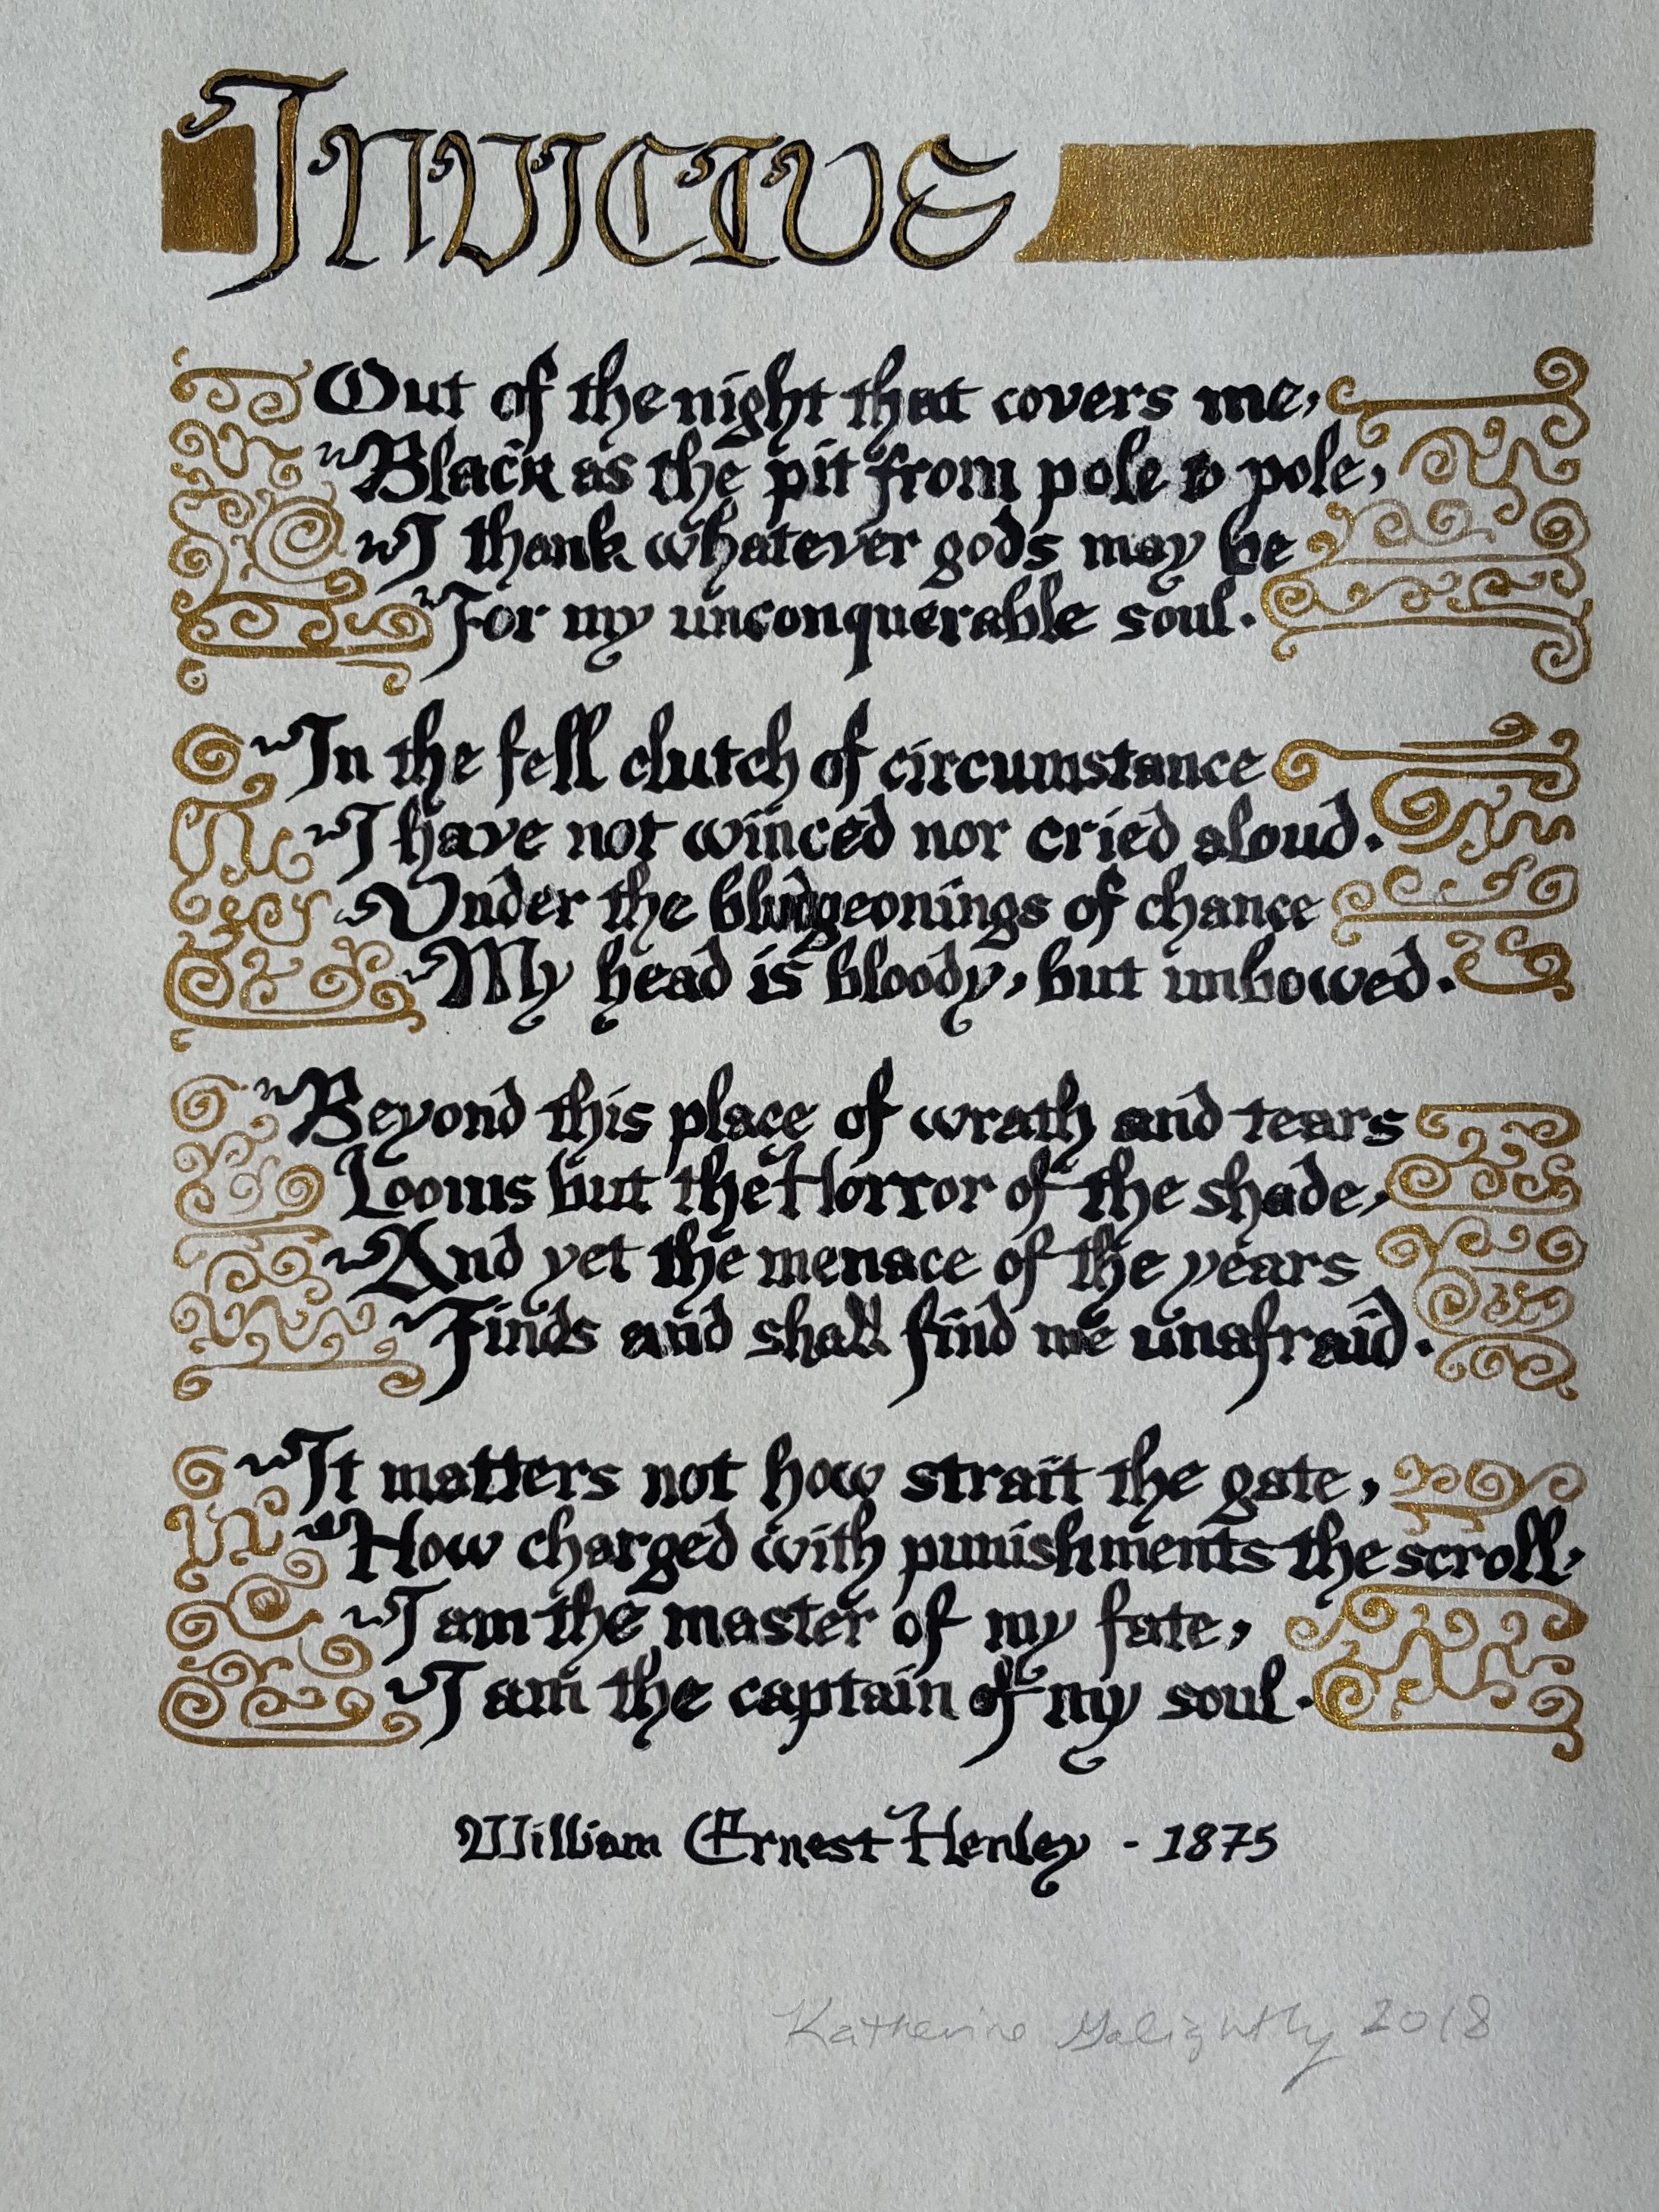 Invictus
Out of the night that covers me,
Black as the pit from pole to pole,
I thank whatever gods may be
For my unconquerable soul.
In the fell clutch of circumstance
I have not winced nor cried aloud.
Under the bludgeonings of chance
My head is bloody, but unbowed.
Beyond this place of wrath and tears
Looms but the Horror of the shade,
And yet the menace of the years
Finds and shall find me unafraid.
It matters not how strait the gate,
How charged with punishments the scroll.
I am the master of my fate,
I am the captain of my soul.
William Ernest Henley - 1875
Katherine Golightly 2018